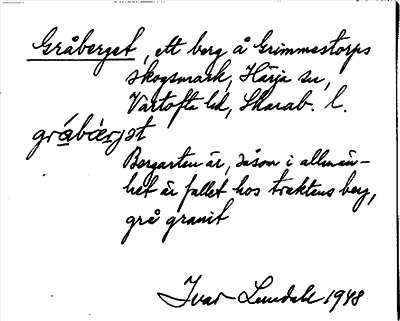 Gråberget, ett berg å Grimmestorps
skogsmark, Härja sn,
Vartofta hd, Skarab. l.
gråbærjət
Bergarten är, såsom i allmän-
het är fallet hos traktens berg,
grå granit
Ivar Lundahl 1948